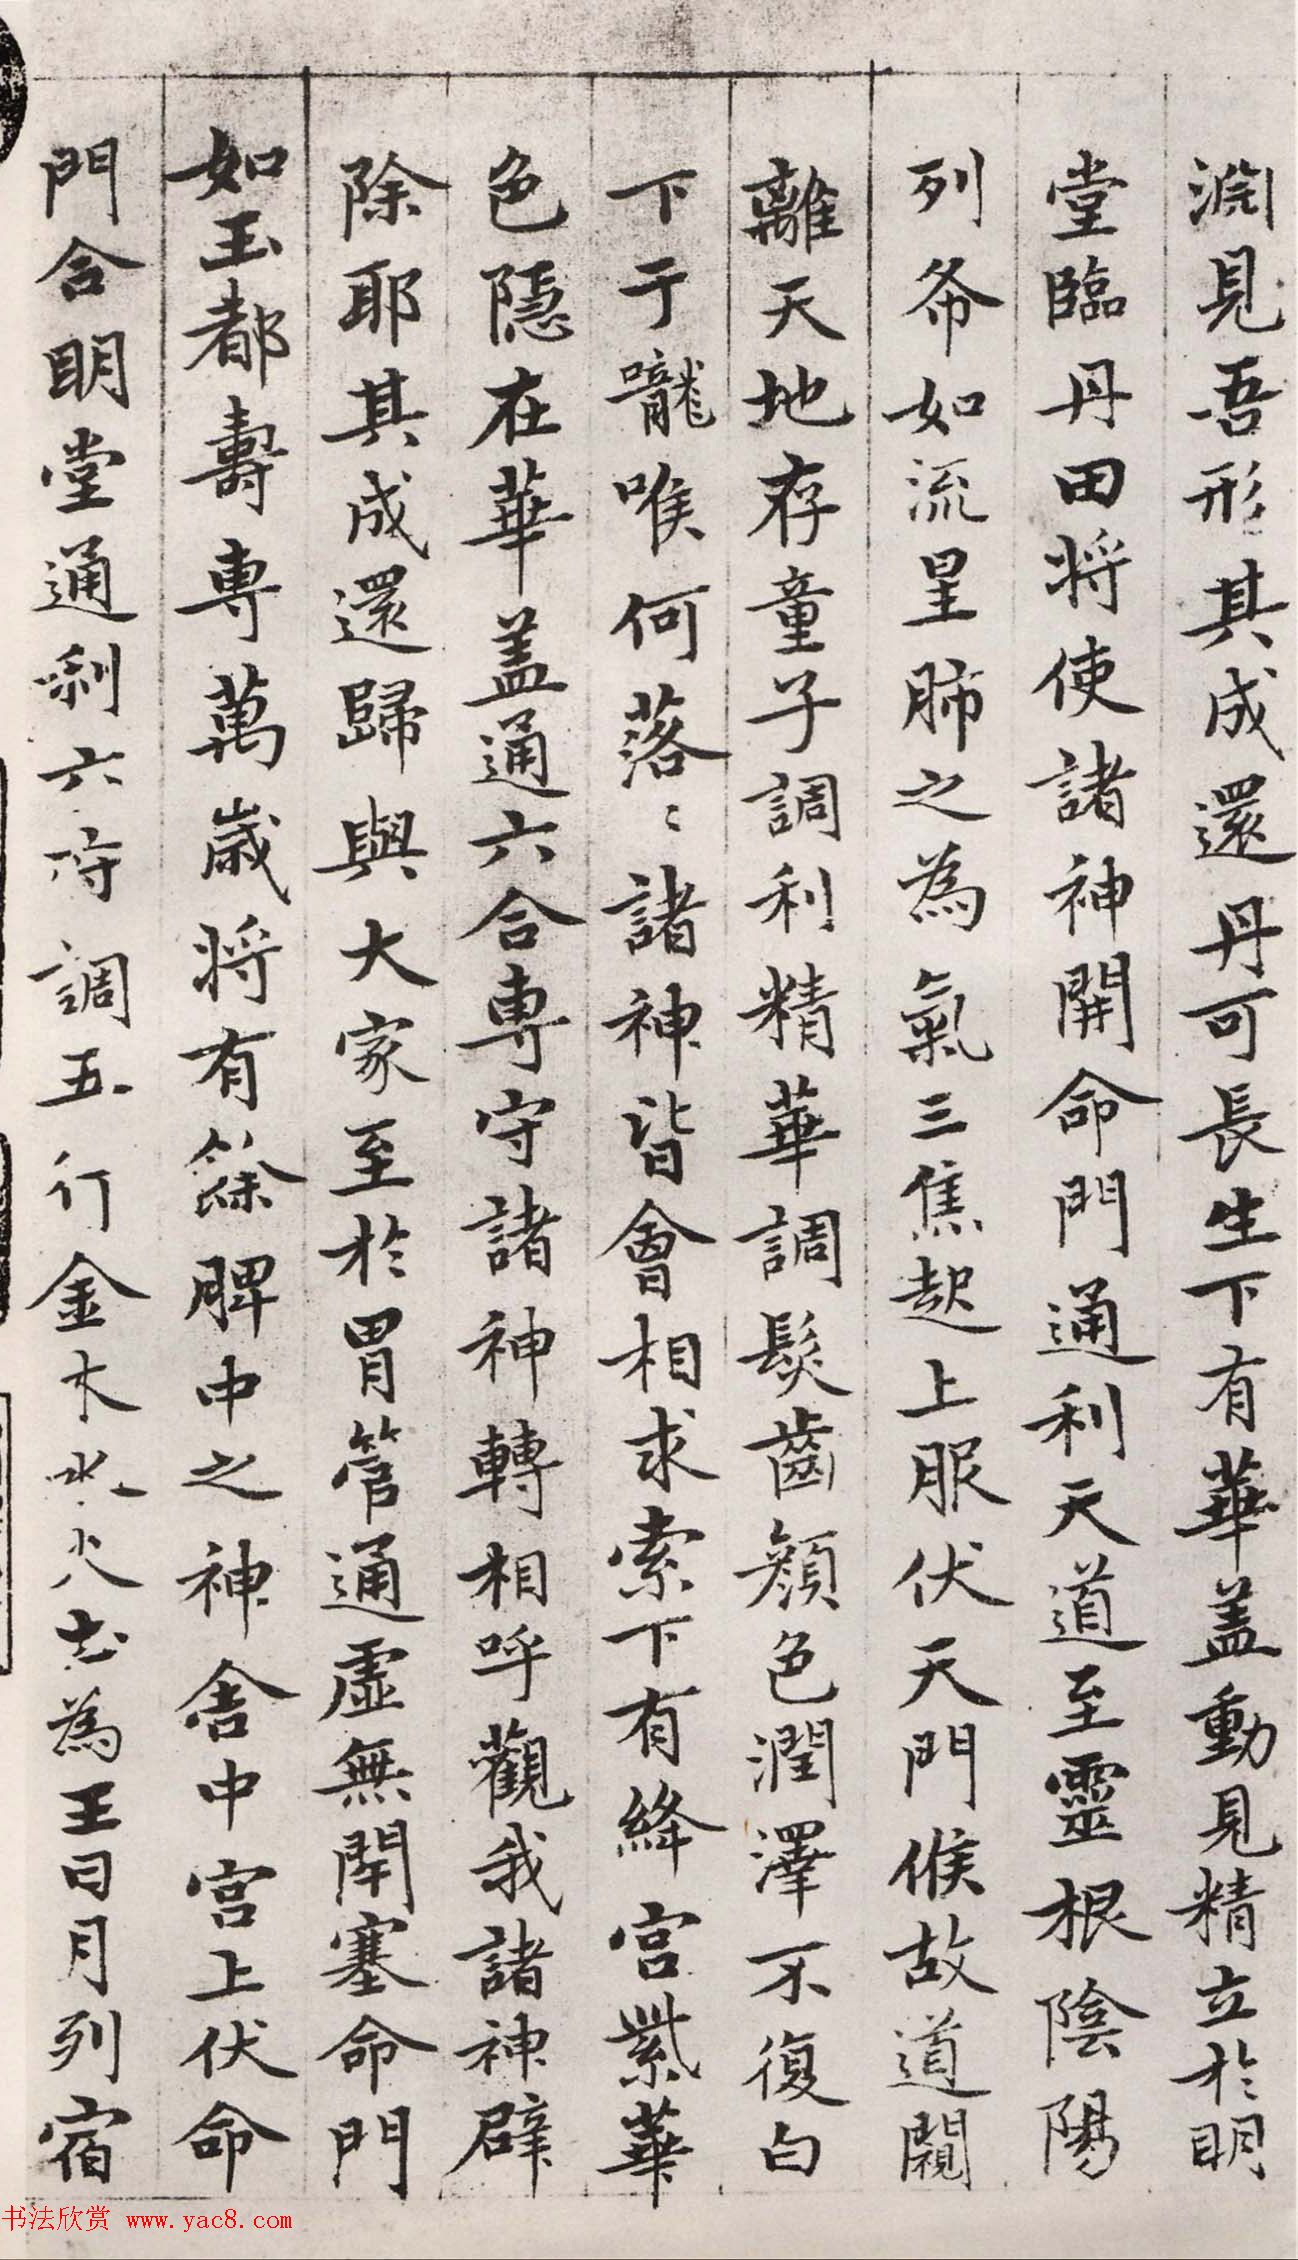 淵見吾形其成還丹可長生下有華盖動見精立於明
堂臨丹田将使諸神開命門通利天道至靈根陰陽
列布如流星肺之為氣三焦起上服伏天門候故道闚
離天地存童子調利精華調髮齒顏色潤澤不復白
下于嚨喉何落〻諸神皆會相求索下有絳宮紫華
色隱在華盖通六合專守諸神轉相呼觀我諸神辟
除耶其成還歸與大家至於胃管通虛無閇塞命門
如玉都壽專萬歲将有餘脾中之神舍中宮上伏命
門合明堂通利六府調五行金木水火土為王日月列宿
书法欣赏 www.yac8.com